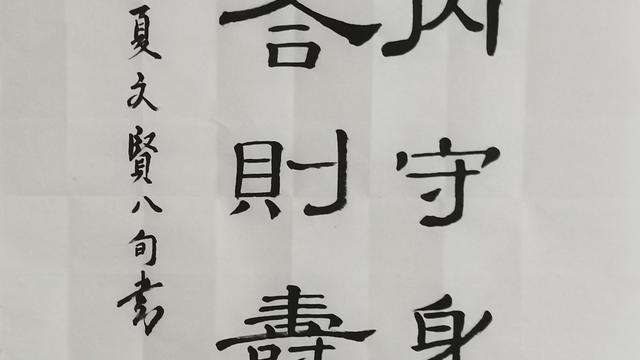 守身
則壽
夏文賢八旬書